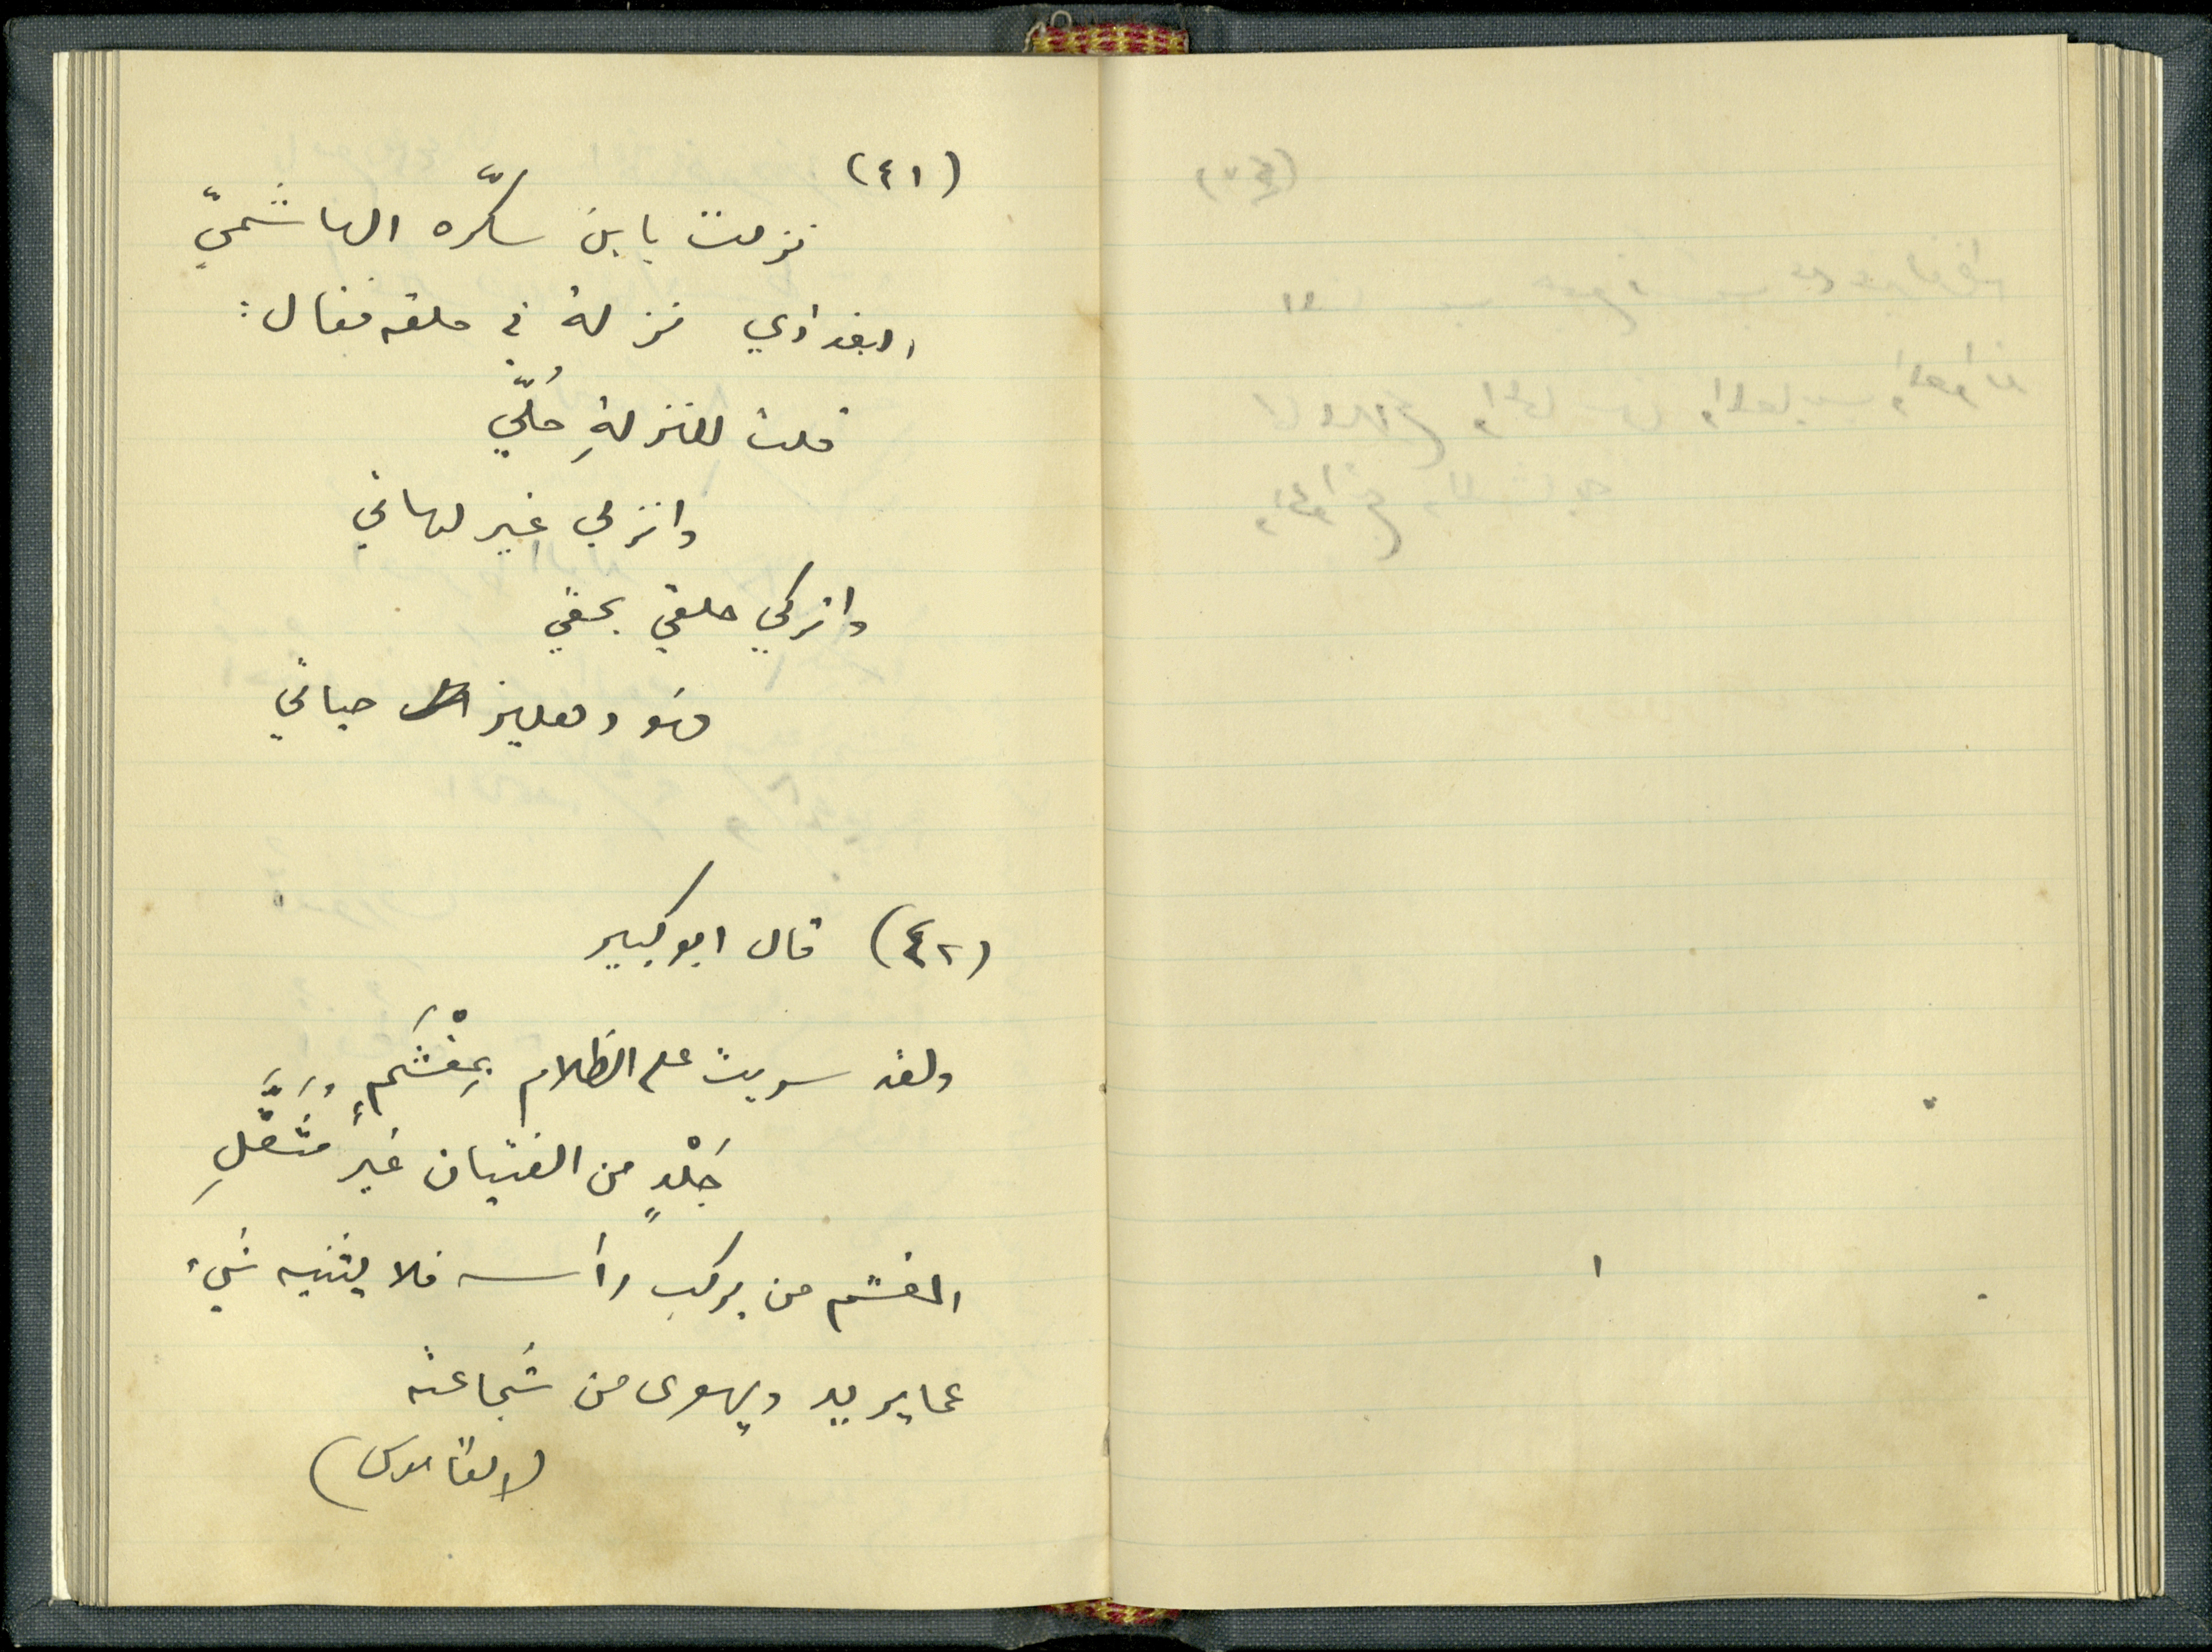 (٤١)
نزلت بابن سكّره الهاشميّ
البغدادي نزلة في حلقه فقال:
قلت للنزلةِ حُلّي
وانزلي غير لهاتي
واتركي حلقي بحقي
فهو دهليز حياتي
(٤٢) قال ابو كبير
ولقد سريت على الظلام بِمِغْشَمٍ
جَلْدٍ من الفتيان غيرِ مُثَقَّلِ
المغشم من يركب رأسه فلا يثنيه شيء
عما يريد ويهوى من شجاعته
(القاموس)